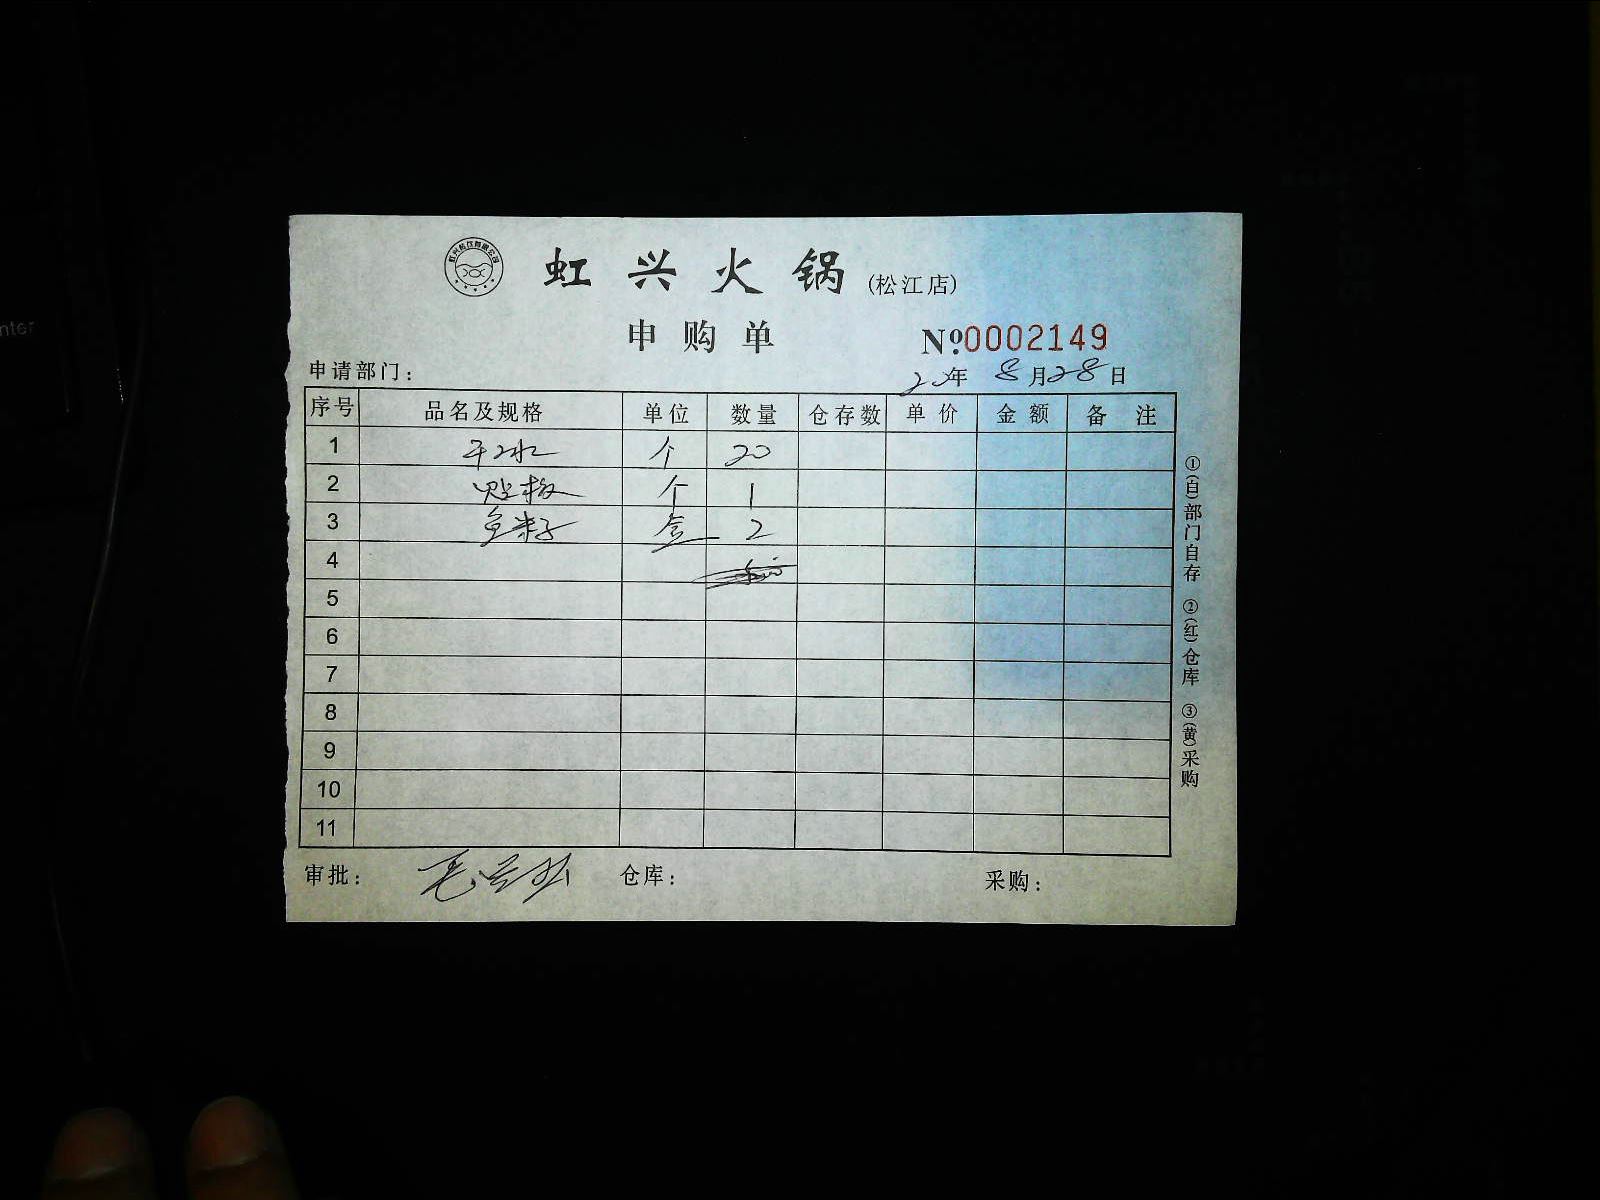 虹兴火锅 (松江店)
申购单 №0002149
申请部门： 20年 8月28日
序号 品名及规格 单位 数量 仓存数 单价 金额 备注
1 干冰 个 20
2 个 1
3 鱼籽 盒 2
4
5
6
7
8
9
10
11
审批： 仓库： 采购：
①(白)部门自存 ②(红)仓库 ③(黄)采购
nter